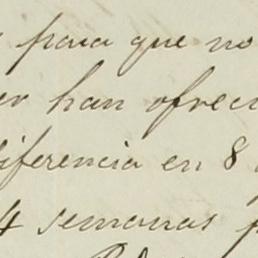 para que no
han ofrec
diferencia en 8
4 semanas p